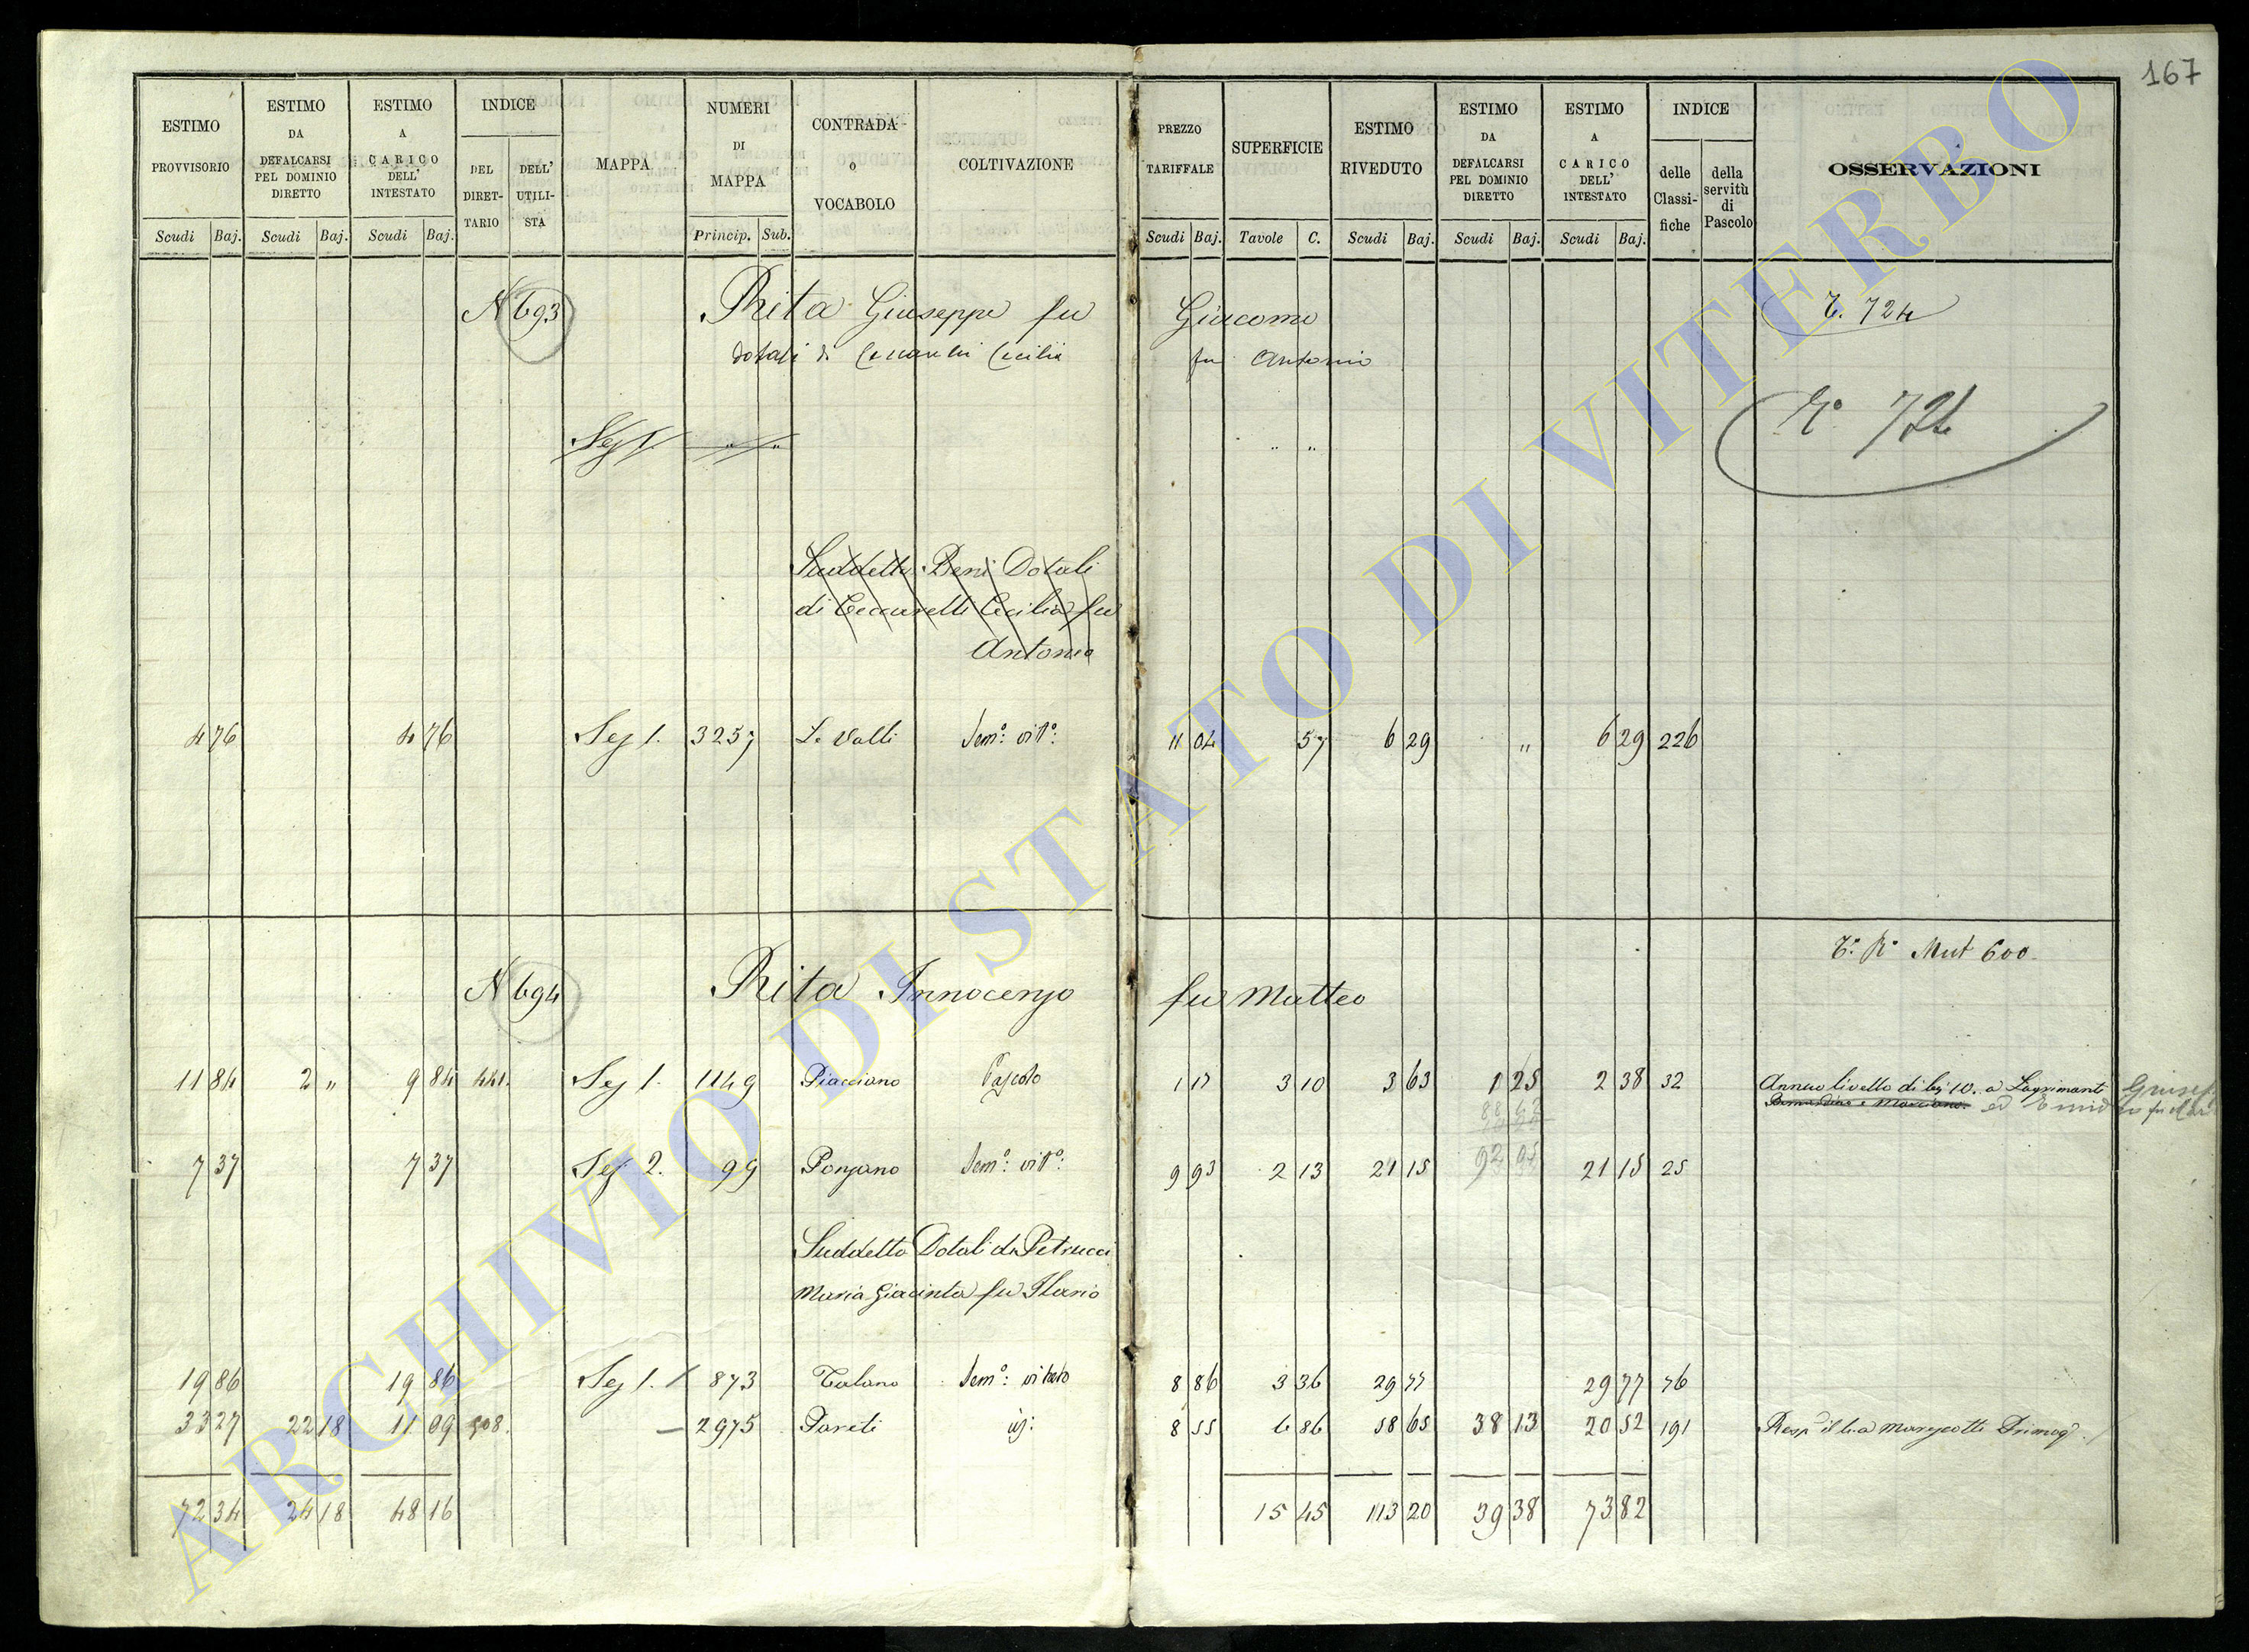 167
ESTIMO PROVVISORIO
ESTIMO DA DEFALCARSI PEL DOMINIO DIRETTO
ESTIMO A CARICO DELL' INTESTATO
INDICE
DEL DIRET- TARIO
DELL' UTILI- STA
MAPPA
NUMERI DI MAPPA
CONTRADA o VOCABOLO
COLTIVAZIONE
PREZZO TARIFFALE
SUPERFICIE
ESTIMO RIVEDUTO
ESTIMO DA DEFALCARSI PEL DOMINIO DIRETTO
ESTIMO A CARICO DELL' INTESTATO
INDICE
delle Classi- fiche
della servitù di Pascolo
OSSERVAZIONI
Scudi Baj. Scudi Baj. Scudi Baj. Princip. Sub. Scudi Baj. Tavole C. Scudi Baj. Scudi Baj. Scudi Baj.
N 693 Rita Giuseppe fu Giacomo T. 724
dotali di Cecilia fu Antonio
Sez 1. " " " " R° 724
Suddetto Beni Dotali
di Ceccarelli Cecilia fu
Antonio
4 76 4 76 Sez 1. 3257 Le Valli Sem°: vit°: 11 04 57 6 29 " 6 29 226
T.° R° Mut 600
N 694 Rita Innocenzo fu Matteo
11 84 2 " 9 84 441. Sez 1. 1149 Piacciano Pascolo 1 17 3 10 3 63 1 25 2 38 32 Annuo livello di bj 10. a Lagrimanti Giusep
Bernardino e Marciano ed Emid
7 37 7 37 Sez 2. 99 Ponzano Sem°: vit°: 9 93 2 13 21 15 92 95 21 15 25
Suddetto Dotali di Petrucci
Maria Giacinta fu Ilario
19 86 19 86 Sez 1. 873 Talano Sem°: vitato 8 86 3 36 29 77 29 77 76
33 27 22 18 11 09 508. — 2975 Pareti id: 8 55 6 86 58 65 38 13 20 52 191 Marescotti Primog.
72 34 24 18 48 16 15 45 113 20 39 38 73 82
ARCHIVIO DI STATO DI VITERBO